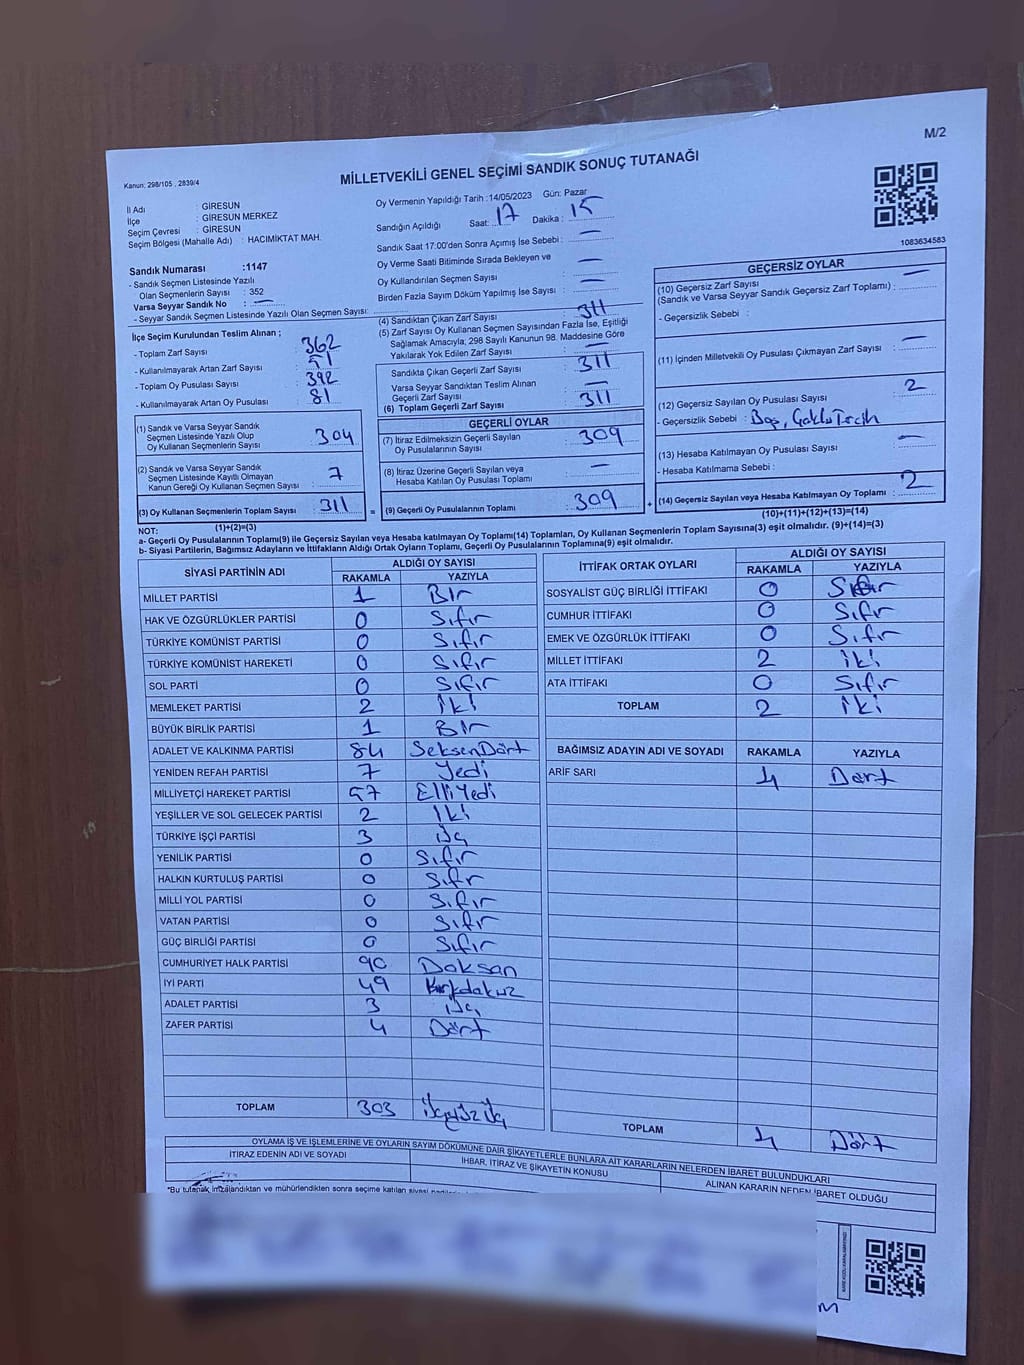 M/2
Kanun: 298/105 , 2839/4
MİLLETVEKİLİ GENEL SEÇİMİ SANDIK SONUÇ TUTANAĞI
İl Adı : GİRESUN
İlçe : GİRESUN MERKEZ
Seçim Çevresi : GİRESUN
Seçim Bölgesi (Mahalle Adı) : HACIMİKTAT MAH.
Oy Vermenin Yapıldığı Tarih :14/05/2023 Gün: Pazar
Sandığın Açıldığı Saat: 17 Dakika : 15
Sandık Saat 17:00'den Sonra Açımış İse Sebebi : —
Oy Verme Saati Bitiminde Sırada Bekleyen ve
Oy Kullandırılan Seçmen Sayısı : —
Birden Fazla Sayım Döküm Yapılmış İse Sayısı : —
1083634583
Sandık Numarası :1147
- Sandık Seçmen Listesinde Yazılı
Olan Seçmenlerin Sayısı : 352
Varsa Seyyar Sandık No : —
- Seyyar Sandık Seçmen Listesinde Yazılı Olan Seçmen Sayısı:
İlçe Seçim Kurulundan Teslim Alınan ;
- Toplam Zarf Sayısı : 362
- Kullanılmayarak Artan Zarf Sayısı : 51
- Toplam Oy Pusulası Sayısı : 392
- Kullanılmayarak Artan Oy Pusulası : 81
(1) Sandık ve Varsa Seyyar Sandık
Seçmen Listesinde Yazılı Olup
Oy Kullanan Seçmenlerin Sayısı : 304
(2) Sandık ve Varsa Seyyar Sandık
Seçmen Listesinde Kayıtlı Olmayan
Kanun Gereği Oy Kullanan Seçmen Sayısı : 7
(3) Oy Kullanan Seçmenlerin Toplam Sayısı : 311
(1)+(2)=(3)
(4) Sandıktan Çıkan Zarf Sayısı : 311
(5) Zarf Sayısı Oy Kullanan Seçmen Sayısından Fazla İse, Eşitliği
Sağlamak Amacıyla, 298 Sayılı Kanunun 98. Maddesine Göre
Yakılarak Yok Edilen Zarf Sayısı : —
Sandıkta Çıkan Geçerli Zarf Sayısı : 311
Varsa Seyyar Sandıktan Teslim Alınan
Geçerli Zarf Sayısı : —
(6) Toplam Geçerli Zarf Sayısı : 311
GEÇERLİ OYLAR
(7) İtiraz Edilmeksizin Geçerli Sayılan
Oy Pusulalarının Sayısı : 309
(8) İtiraz Üzerine Geçerli Sayılan veya
Hesaba Katılan Oy Pusulası Toplamı : —
= (9) Geçerli Oy Pusulalarının Toplamı : 309 +
GEÇERSİZ OYLAR
(10) Geçersiz Zarf Sayısı
(Sandık ve Varsa Seyyar Sandık Geçersiz Zarf Toplamı) : —
- Geçersizlik Sebebi :
(11) İçinden Milletvekili Oy Pusulası Çıkmayan Zarf Sayısı : —
(12) Geçersiz Sayılan Oy Pusulası Sayısı : 2
- Geçersizlik Sebebi : Boş, Çoklu Tercih
(13) Hesaba Katılmayan Oy Pusulası Sayısı : —
- Hesaba Katılmama Sebebi :
(14) Geçersiz Sayılan veya Hesaba Katılmayan Oy Pusulası Toplamı : 2
(10)+(11)+(12)+(13)=(14)
NOT:
a- Geçerli Oy Pusulalarının Toplamı(9) ile Geçersiz Sayılan veya Hesaba katılmayan Oy Toplamı(14) Toplamları, Oy Kullanan Seçmenlerin Toplam Sayısına(3) eşit olmalıdır. (9)+(14)=(3)
b- Siyasi Partilerin, Bağımsız Adayların ve İttifakların Aldığı Ortak Oyların Toplamı, Geçerli Oy Pusulalarının Toplamına(9) eşit olmalıdır.
SİYASİ PARTİNİN ADI ALDIĞI OY SAYISI
RAKAMLA YAZIYLA
MİLLET PARTİSİ 1 Bir
HAK VE ÖZGÜRLÜKLER PARTİSİ 0 Sıfır
TÜRKİYE KOMÜNİST PARTİSİ 0 Sıfır
TÜRKİYE KOMÜNİST HAREKETİ 0 Sıfır
SOL PARTİ 0 Sıfır
MEMLEKET PARTİSİ 2 İki
BÜYÜK BİRLİK PARTİSİ 1 Bir
ADALET VE KALKINMA PARTİSİ 84 SeksenDört
YENİDEN REFAH PARTİSİ 7 Yedi
MİLLİYETÇİ HAREKET PARTİSİ 57 ElliYedi
YEŞİLLER VE SOL GELECEK PARTİSİ 2 İki
TÜRKİYE İŞÇİ PARTİSİ 3 Üç
YENİLİK PARTİSİ 0 Sıfır
HALKIN KURTULUŞ PARTİSİ 0 Sıfr
MİLLİ YOL PARTİSİ 0 Sıfır
VATAN PARTİSİ 0 Sıfır
GÜÇ BİRLİĞİ PARTİSİ 0 Sıfır
CUMHURİYET HALK PARTİSİ 90 Doksan
İYİ PARTİ 49 Kırkdokuz
ADALET PARTİSİ 3 Üç
ZAFER PARTİSİ 4 Dört
TOPLAM 303 Üçyüz Üç
İTTİFAK ORTAK OYLARI ALDIĞI OY SAYISI
RAKAMLA YAZIYLA
SOSYALİST GÜÇ BİRLİĞİ İTTİFAKI 0 Sıfır
CUMHUR İTTİFAKI 0 Sıfır
EMEK VE ÖZGÜRLÜK İTTİFAKI 0 Sıfır
MİLLET İTTİFAKI 2 İki
ATA İTTİFAKI 0 Sıfır
TOPLAM 2 İki
BAĞIMSIZ ADAYIN ADI VE SOYADI RAKAMLA YAZIYLA
ARİF SARI 4 Dört
TOPLAM 4 Dört
OYLAMA İŞ VE İŞLEMLERİNE VE OYLARIN SAYIM DÖKÜMÜNE DAİR ŞİKAYETLERLE BUNLARA AİT KARARLARIN NELERDEN İBARET BULUNDUKLARI
İTİRAZ EDENİN ADI VE SOYADI
İHBAR, İTİRAZ VE ŞİKAYETİN KONUSU
ALINAN KARARIN NEDEN İBARET OLDUĞU
*Bu tutanak imzalandıktan ve mühürlendikten sonra seçime katılan siyasi